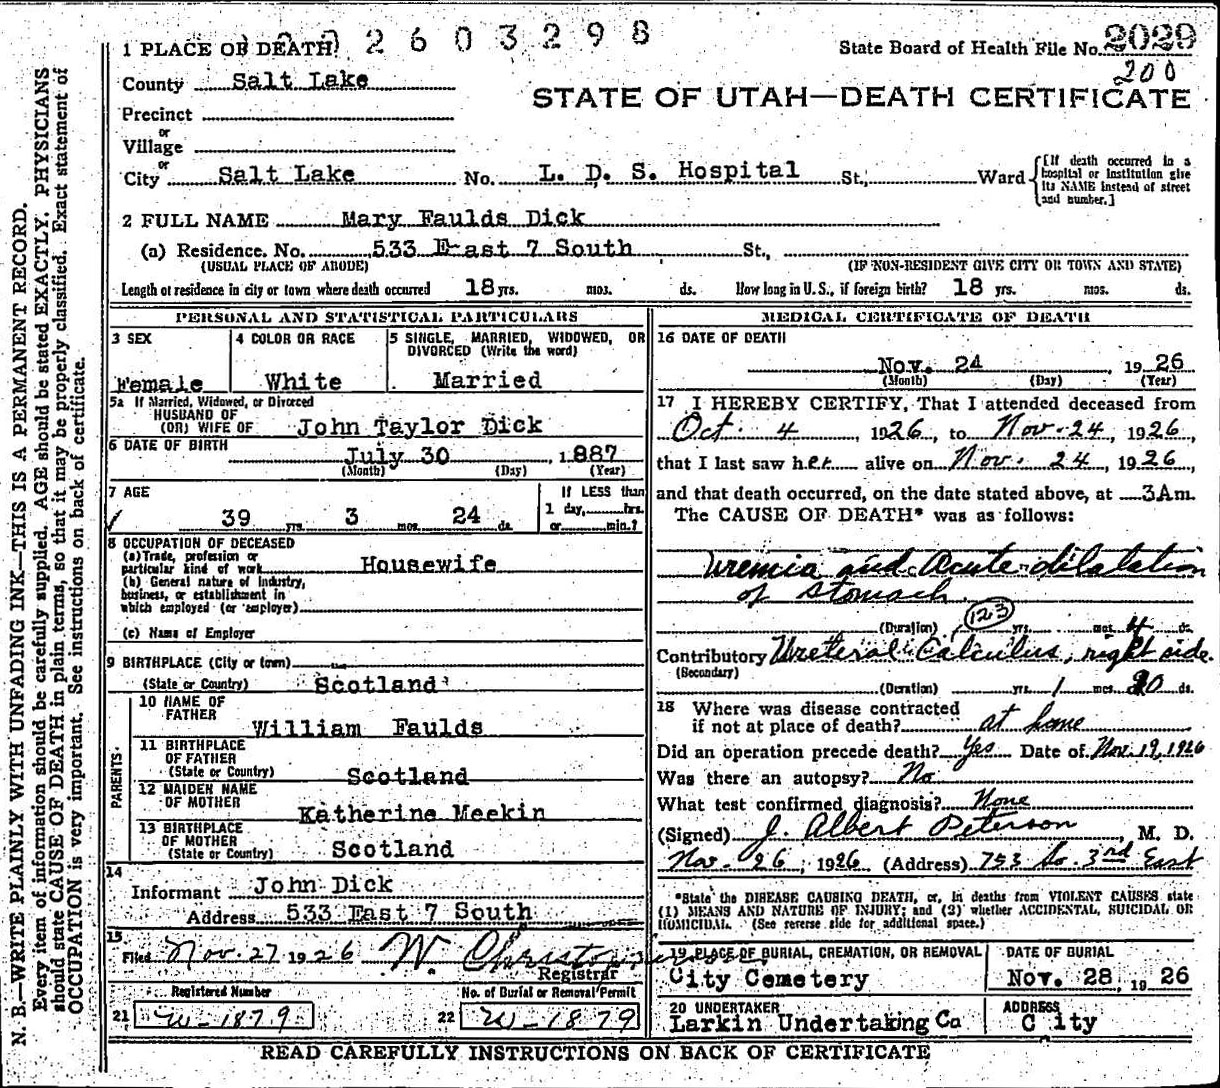 2603298
State Board of Health File No. 2029
200
1 PLACE OF DEATH
County Salt Lake
STATE OF UTAH—DEATH CERTIFICATE
Precinct
or
Village
or
City Salt Lake No. L. D. S. Hospital St., Ward
[If death occurred in a hospital or institution give its NAME instead of street and number.]
2 FULL NAME Mary Faulds Dick
(a) Residence. No. 533 East 7 South St.,
(USUAL PLACE OF ABODE) (IF NON-RESIDENT GIVE CITY OR TOWN AND STATE)
Length of residence in city or town where death occurred 18 yrs. mos. ds. How long in U. S., if foreign birth? 18 yrs. mos. ds.
PERSONAL AND STATISTICAL PARTICULARS
3 SEX
Female
4 COLOR OR RACE
White
5 SINGLE, MARRIED, WIDOWED, OR
DIVORCED (Write the word)
Married
5a If Married, Widowed, or Divorced
HUSBAND OF
(OR) WIFE OF John Taylor Dick
6 DATE OF BIRTH July 30, 1887
(Month) (Day) (Year)
7 AGE
39 yrs. 3 mos. 24 ds.
If LESS than
1 day, hrs.
or min.?
8 OCCUPATION OF DECEASED
(a) Trade, profession or
particular kind of work Housewife
(b) General nature of industry,
business, or establishment in
which employed (or employer)
(c) Name of Employer
9 BIRTHPLACE (City or town)
(State or Country) Scotland
PARENTS
10 NAME OF
FATHER William Faulds
11 BIRTHPLACE
OF FATHER
(State or Country) Scotland
12 MAIDEN NAME
OF MOTHER Katherine Meekin
13 BIRTHPLACE
OF MOTHER
(State or Country) Scotland
14
Informant John Dick
Address 533 East 7 South
15
Filed Nov. 27 1926 W
Registrar
Registered Number
21 W-1879
No. of Burial or Removal Permit
22 W-1879
MEDICAL CERTIFICATE OF DEATH
16 DATE OF DEATH
Nov. 24 1926
(Month) (Day) (Year)
17 I HEREBY CERTIFY, That I attended deceased from
Oct. 4, 1926, to Nov. 24, 1926,
that I last saw her alive on Nov. 24, 1926,
and that death occurred, on the date stated above, at 3 Am.
The CAUSE OF DEATH* was as follows:
Uremia and Acute dilalation
of stomach.
(Duration) 123 yrs. mos. 4 ds.
Contributory Ureteral Calculus, right side.
(Secondary)
(Duration) yrs. 1 mos. 20 ds.
18 Where was disease contracted
if not at place of death? at home
Did an operation precede death? Yes Date of Nov. 19, 1926
Was there an autopsy? No
What test confirmed diagnosis? None
(Signed) J. Albert Peterson, M. D.
Nov. 26, 1926 (Address) 753 So. 3rd East
*State the DISEASE CAUSING DEATH, or, in deaths from VIOLENT CAUSES state
(1) MEANS AND NATURE OF INJURY; and (2) whether ACCIDENTAL, SUICIDAL OR
HOMICIDAL. (See reverse side for additional space.)
19 PLACE OF BURIAL, CREMATION, OR REMOVAL
City Cemetery
DATE OF BURIAL
Nov. 28, 1926
20 UNDERTAKER
Larkin Undertaking Co
ADDRESS
City
READ CAREFULLY INSTRUCTIONS ON BACK OF CERTIFICATE
N. B.—WRITE PLAINLY WITH UNFADING INK—THIS IS A PERMANENT RECORD.
Every item of information should be carefully supplied. AGE should be stated EXACTLY. PHYSICIANS
should state CAUSE OF DEATH in plain terms, so that it may be properly classified. Exact statement of
OCCUPATION is very important. See instructions on back of certificate.